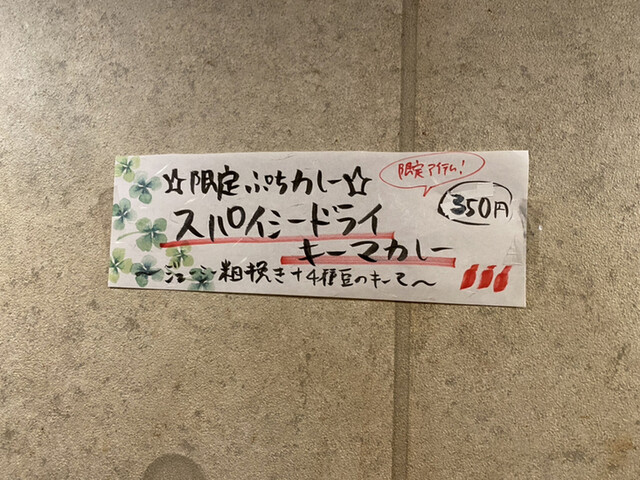 ☆限定ぷちカレー☆
限定アイテム!
350円
スパイシードライ
キーマカレー
〜ジューシー粗挽き+4種豆のキーマ〜